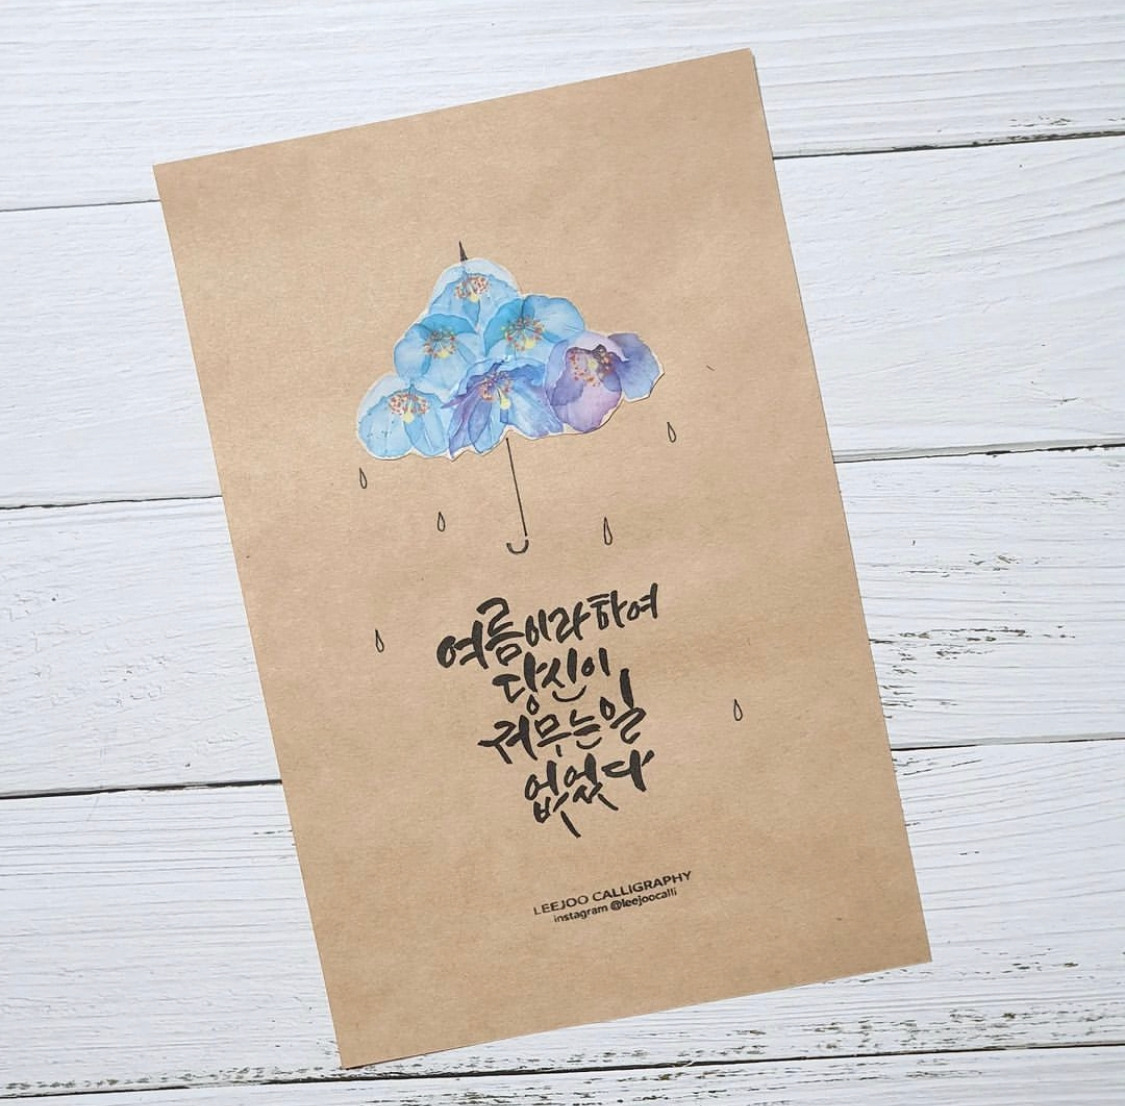 여름이라하여
당신이
져무는일
없었다
LEEJOO CALLIGRAPHY
instagram @leejoocalli